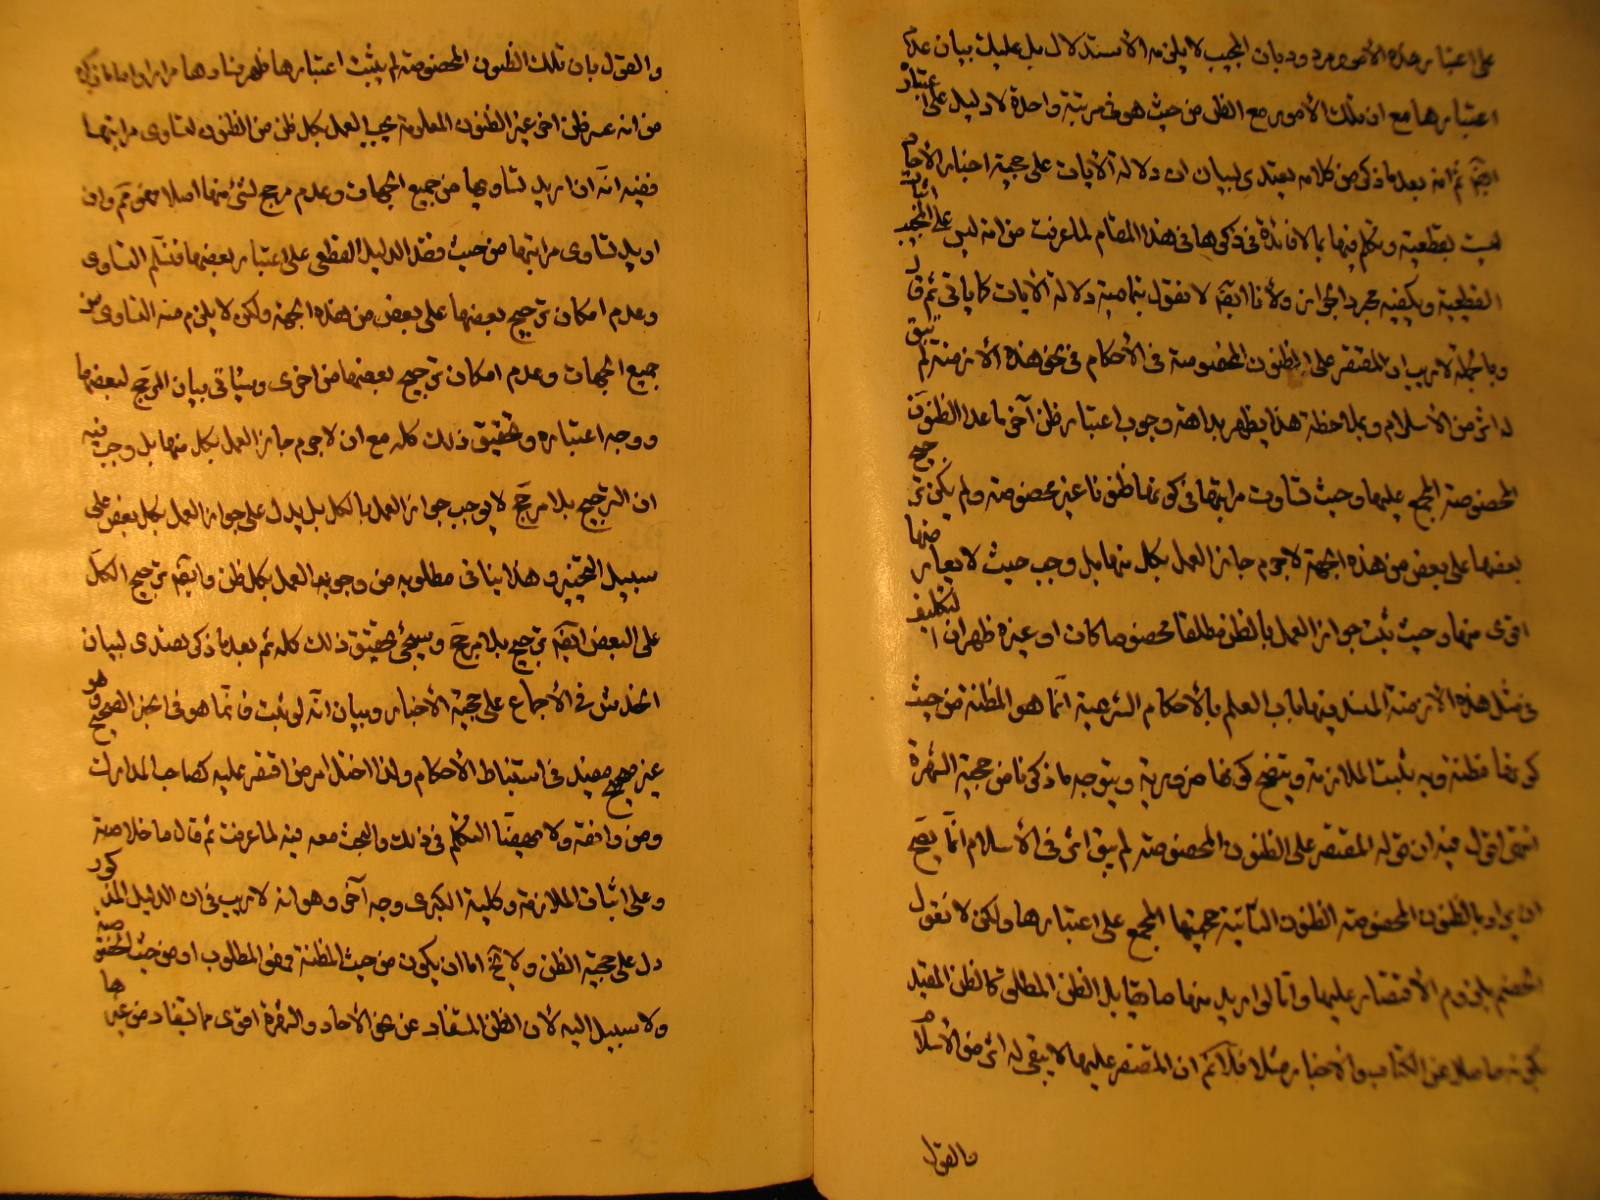 على اعتبار هذه الأمور مردود بان المجيب لا يلزمه الأستدلال بل عليك بيان عدم
اعتبارها مع ان تلك الأمور مع الظن من حيث هو في مرتبة واحدة لا دليل على اعتبار
ايضا ثم انه بعد ما ذكر من كلامه يبتدى لبيان ان دلالة الأيات على حجية اخبار الأحاد
ليست بقطعية وتكلم فيها بما لا فائدة في ذكرها في هذا المقام لما عرفت من انه ليس على المجيب اثبات
القطعية ويكفيه مجرد الجواز ولأنا ايضا لا نقول بتمامية دلالة الأيات كما ياتي ثم قال
وبالجملة لا ريب ان المقتصر على الظنون المخصوصة في الأحكام في نحو هذه الأزمنة لم يبق
له اثر من الأسلام وبملاحظة هذا يظهر بداهة وجوب اعتبار ظن آخر ما عدا الظنون
المخصوصة المجمع عليها وحيث تساوت مراتبها في كونها ظنونا غير مخصوصة ولم يكن ترجيح
بعضها على بعض من هذه الجهة لا جرم جاز العمل بكل منها بل وجب حيث لا يعارض منها
اقوى منها وحيث ثبت جواز العمل بالظن مطلقا مخصوصا كان او غيره ظهر ان التكليف
في مثل هذه الأزمنة المنسد فيها باب العلم بالأحكام الشرعية انما هو المظنة من حيث
كونها مظنة وبه يثبت الملازمة ويتضح كونها ضرورية ويتوجه ما ذكرنا من حجية الشهرة
انتهى اقول فيه ان قوله المقتصر على الظنون المخصوصة لم يبق اثر في الأسلام انما يصح
ان يراد بالظنون المخصوصة الظنون الثابتة حجيتها المجمع على اعتبارها ولكن لا نقول
الخصم يلزوم الأقتصار عليها وامّا لو اريد منها ما يقابل الظن المطلق كالظن المقيد
بكونه حاصلا عن الكتاب والأخبار مثلا فلا نم ان المقتصر عليها لا يبقى له اثر من الأسلام
والقول
والقول بان تلك الظنون المخصوصة لم يثبت اعتبارها ظهر فسادها مرارا واما ما ذكره
من انه عند ظن اخر غير الظنون المعلومة يجب العمل بكل ظن من الظنون لتساوى مراتبها
ففيه انه ان اريد تساويها من جميع الجهات وعدم مرجح لشئ منها اصلا فهو مم وان
اريد تساوى مراتبها من حيث فقد الدليل القطعى على اعتبار بعضها فنسلم التساوى
وعدم امكان ترجيح بعضها على بعض من هذه الجهة ولكن لا يلزم منه التساوى من
جميع الجهات وعدم امكان ترجيح بعضها من اخرى وسيأتى بيان المرجح لبعضها
ووجه اعتباره وتحقيق ذلك كله مع ان لا جرم جاز العمل بكل منها بل وجب فيه
ان الترجيح بلا مرجح لا يوجب جواز العمل بالكل بل يدل على جواز العمل بكل بعض على
سبيل التخيير وهذا ينافى مطلوبه من وجوب العمل بكل ظن وايضا ترجيح الكل
على البعض ايضا ترجيح بلا مرجح وسيجئ تحقيق ذلك كله ثم بعد ما ذكر تصدى لبيان
الخدش في الأجماع على حجية الأخبار وبيان انه لو ثبت فانما هو في الخبر الصحيح وهو
غير مفيد في استنباط الأحكام ولذا اختل امر من اقتصر عليه كصاحب المدارك
ومن وافقه ولا يهمنا التكلم في ذلك والبحث معه فيه لما عرفت ثم قال ما خلاصة
وعلى اثبات الملازمة وكلية الكبرى وجه آخر وهو انه لا ريب في ان الدليل المذكور
دل على حجية الظن ولا يخ اما ان يكون من حيث المظنة فهو المطلوب او من حيث الخصوصية
ولا سبيل اليه لأن الظن المستفاد عن نحو الأحاد والشهرة اقوى مما يستفاد من غيرها